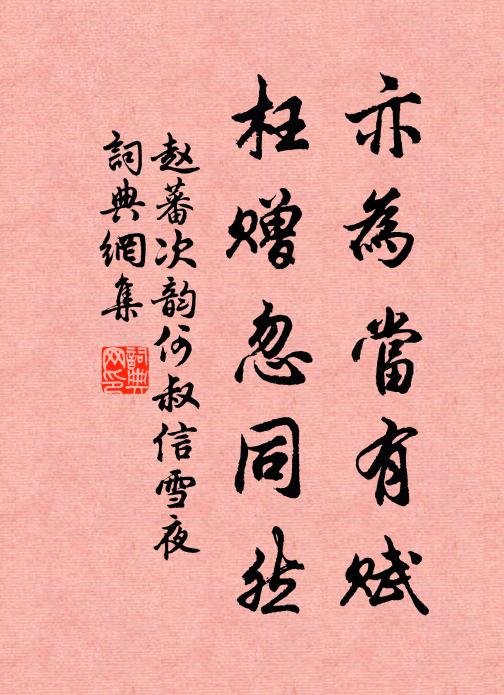 亦為當有賦
枉贈忽同然
赵蕃次韵何叔信雪夜
詞典網集
詞典网印